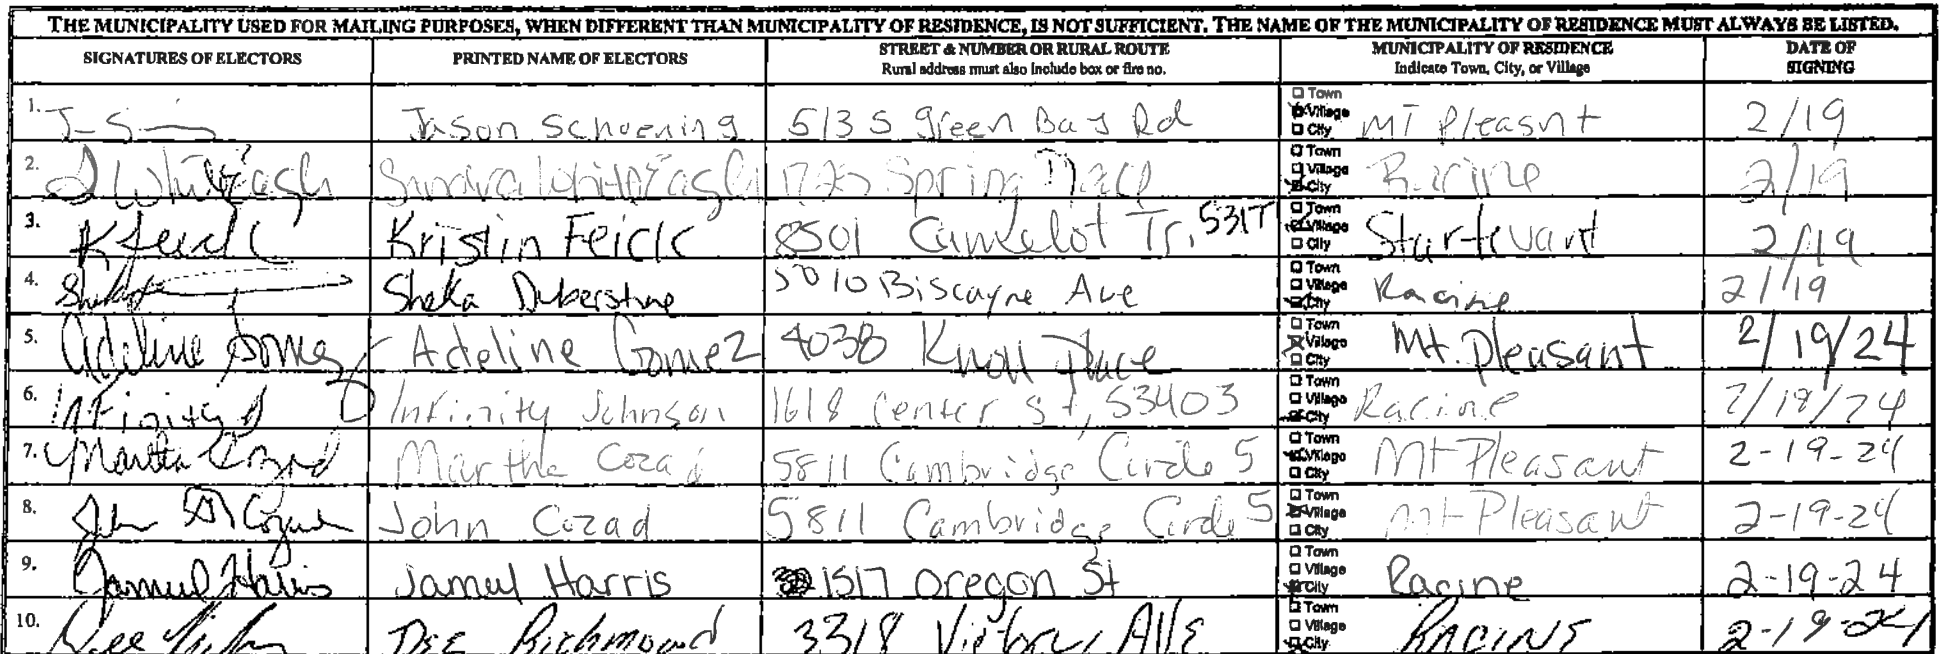 THE MUNICIPALITY USED FOR MAILING PURPOSES, WHEN DIFFERENT THAN MUNICIPALITY OF RESIDENCE, IS NOT SUFFICIENT. THE NAME OF THE MUNICIPALITY OF RESIDENCE MUST ALWAYS BE LISTED.
SIGNATURES OF ELECTORS PRINTED NAME OF ELECTORS STREET & NUMBER OR RURAL ROUTE MUNICIPALITY OF RESIDENCE DATE OF
Rural address must also include box or fire no. Indicate Town, City, or Village SIGNING
1. Jason Schoening 5135 Green Bay Rd Town Village City MT Pleasnt 2/19
2. S Whiteash Sandra 1725 Spring Place Town Village City Racine 2/19
3. K Feick Kristin Feick 8501 Camelot Tr. Town Village City Sturtevant 2/19
4. Sheka 5010 Biscayne Ave Town Village City Racine 2/19
5. Adeline Gomez Adeline Gomez 4038 Knoll Place Town Village City Mt. Pleasant 2/19/24
6. Infinity J Infinity Johnson 1618 Center St, 53403 Town Village City Racine 2/19/24
7. Martha Cozad Martha Cozad 5811 Cambridge Circle 5 Town Village City Mt Pleasant 2-19-24
8. John Cozad John Cozad 5811 Cambridge Circle 5 Town Village City Mt Pleasant 2-19-24
9. Jamul Harris Jamul Harris 1517 Oregon St Town Village City Racine 2-19-24
10. Dee Dee Richmond 3318 Victory Ave Town Village City RACINE 2-19-24